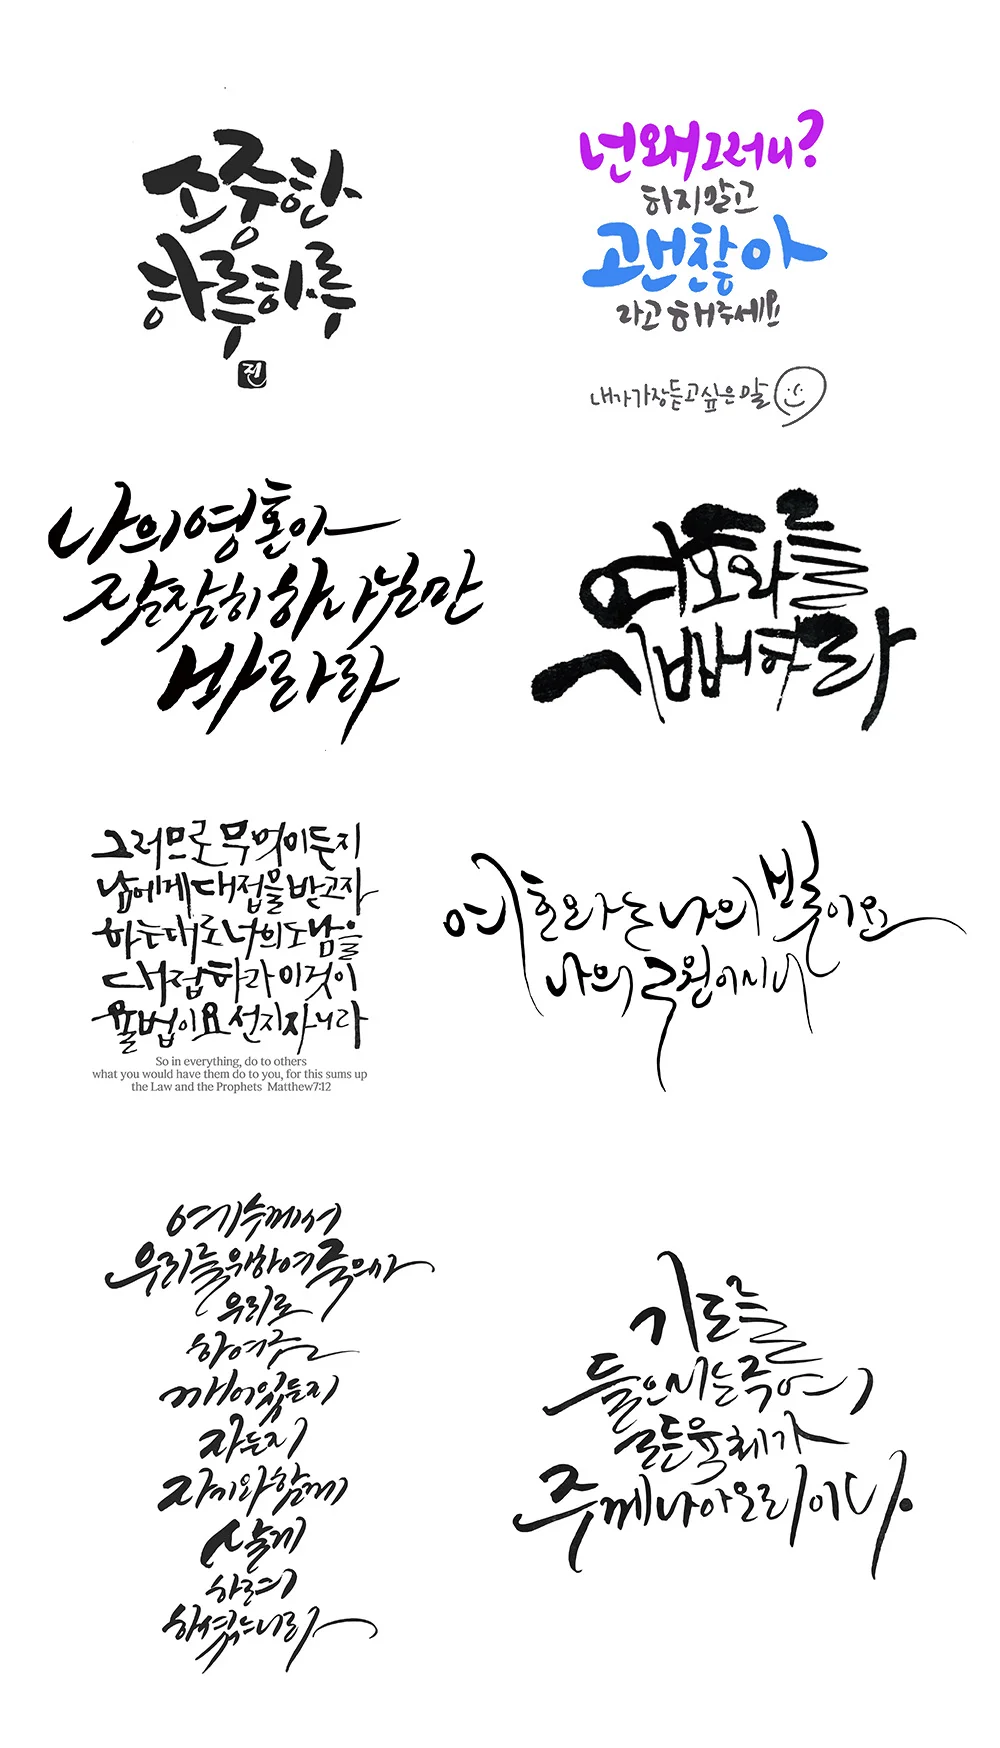 소중한
하루하루
진
넌 왜 그러니?
하지말고
괜찮아
라고 해주세요
내가 가장 듣고 싶은 말
나의 영혼아
잠잠히 하나님만
바라라
여호와를
기뻐하라
그러므로 무엇이든지
남에게 대접을 받고자
하는대로 너희도 남을
대접하라 이것이
율법이요 선지자니라
So in everything, do to others
what you would have them do to you, for this sums up
the Law and the Prophets Matthew7:12
여호와는 나의 빛이요
나의 구원이시니
예수께서
우리를 위하여 죽으사
우리로
하여금
깨어있든지
자든지
자기와 함께
살게
하려
하셨느니라
기도를
들으시는 주여
모든 육체가
주께 나아오리이다.